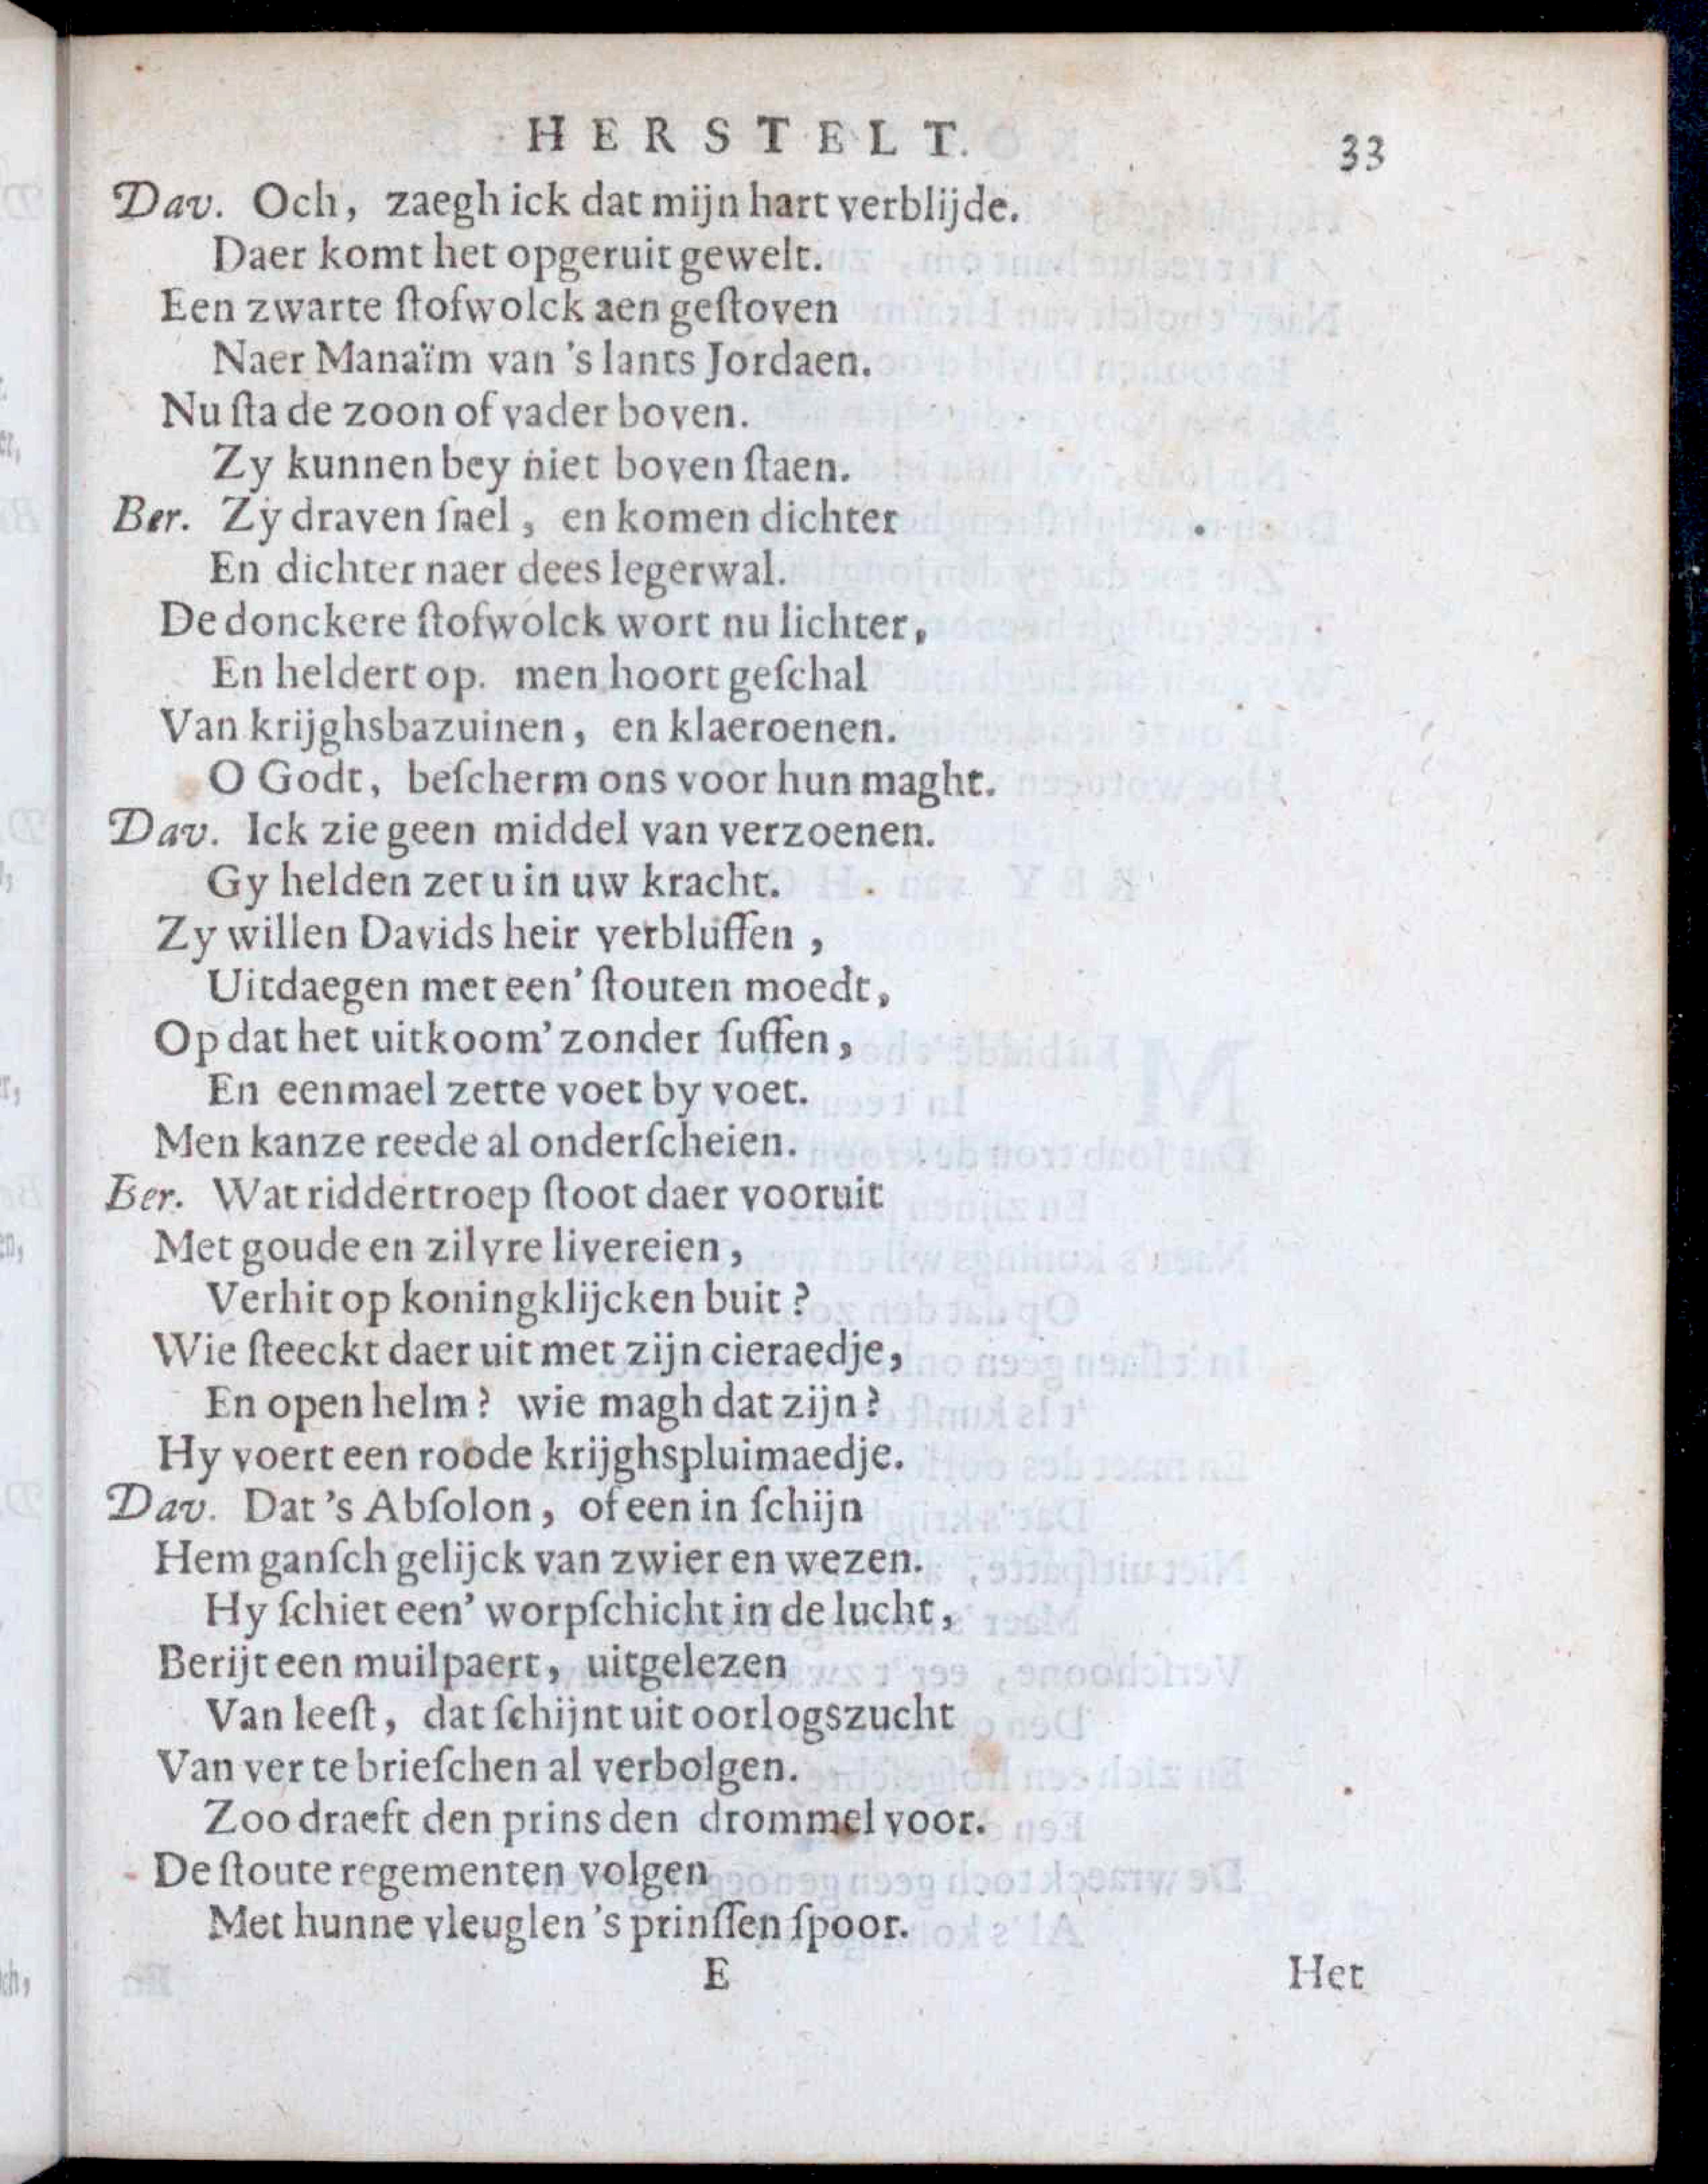 HERSTELT. 33
Dav. Och, zaegh ick dat mijn hart verblijde.
Daer komt het opgeruit gewelt.
Een zwarte ſtofwolck aen geſtoven
Naer Manaïm van 's lants Jordaen.
Nu ſta de zoon of vader boven.
Zy kunnen bey niet boven ſtaen.
Ber. Zy draven ſnel, en komen dichter
En dichter naer dees legerwal.
De donckere ſtofwolck wort nu lichter,
En heldert op. men hoort geſchal
Van krijghsbazuinen, en klaeroenen.
O Godt, beſcherm ons voor hun maght.
Dav. Ick zie geen middel van verzoenen.
Gy helden zet u in uw kracht.
Zy willen Davids heir verbluffen,
Uitdaegen met een' ſtouten moedt,
Op dat het uitkoom' zonder ſuffen,
En eenmael zette voet by voet.
Men kanze reede al onderſcheien.
Ber. Wat riddertroep ſtoot daer vooruit
Met goude en zilvre livereien,
Verhit op koningklijcken buit?
Wie ſteeckt daer uit met zijn cieraedje,
En open helm? wie magh dat zijn?
Hy voert een roode krijghspluimaedje.
Dav. Dat 's Abſolon, of een in ſchijn
Hem ganſch gelijck van zwier en wezen.
Hy ſchiet een' worpſchicht in de lucht,
Berijt een muilpaert, uitgelezen
Van leeſt, dat ſchijnt uit oorlogszucht
Van ver te brieſchen al verbolgen.
Zoo draeft den prins den drommel voor.
De ſtoute regementen volgen
Met hunne vleuglen 's prinſſen ſpoor.
E Het